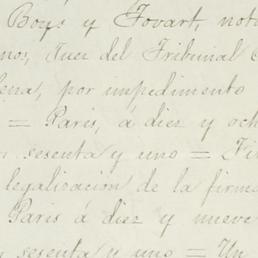 Boys y Fovart, not
nos, Juez del Tribunal
ena, por impedimento
= Paris, á diez y och
sesenta y uno = Fi
legalizacion de la firm
Paris á diez y nueve
y sesenta y uno = Un